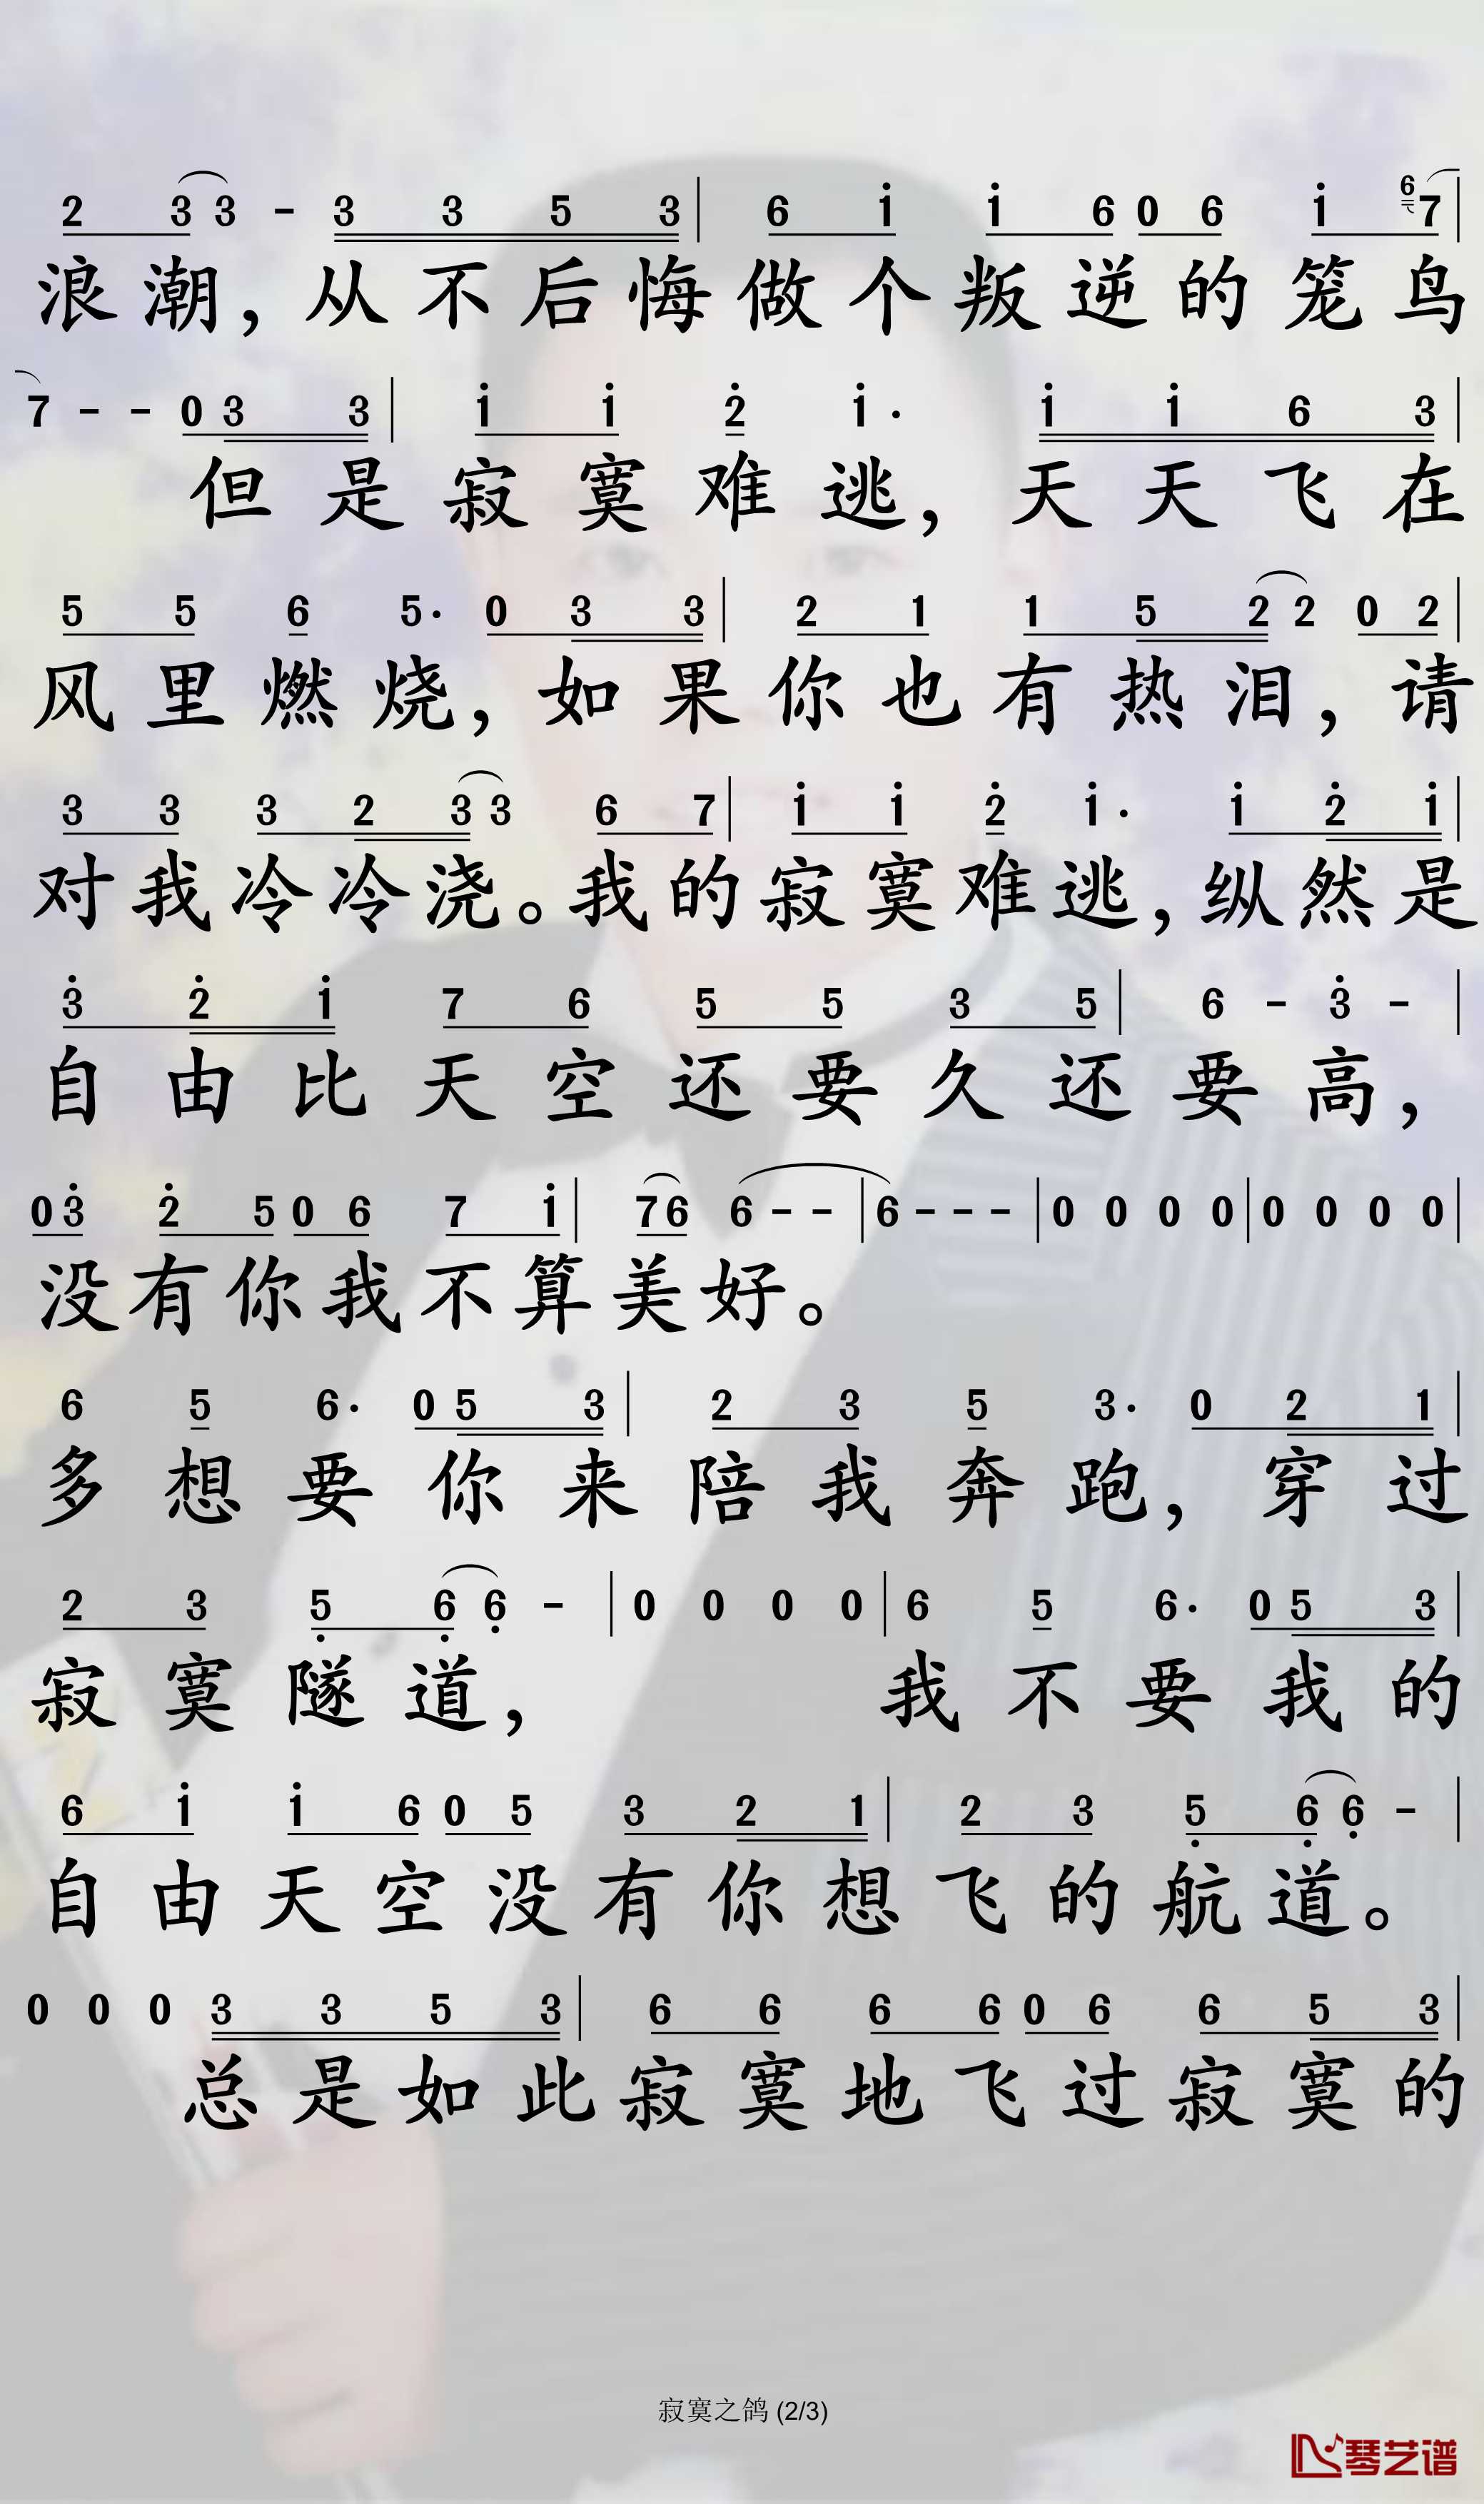 2 3 3 - 3 3 5 3 | 6 i i 6 0 6 i 6 7 |
浪潮，从不后悔做个叛逆的笼鸟
7 - - 0 3 3 | i i 2̇ i · i i 6 3 |
但是寂寞难逃，天天飞在
5 5 6 5 · 0 3 3 | 2 1 1 5 2 2 0 2 |
风里燃烧，如果你也有热泪，请
3 3 3 2 3 3 6 7 | i i 2̇ i · i 2̇ i |
对我冷冷浇。我的寂寞难逃，纵然是
3̇ 2̇ i 7 6 5 5 3 5 | 6 - 3̇ - |
自由比天空还要久还要高，
0 3̇ 2̇ 5 0 6 7 i | 7 6 6 - - | 6 - - - | 0 0 0 0 | 0 0 0 0 |
没有你我不算美好。
6 5 6 · 0 5 3 | 2 3 5 3 · 0 2 1 |
多想要你来陪我奔跑，穿过
2 3 5̣ 6̣ 6̣ - | 0 0 0 0 | 6 5 6 · 0 5 3 |
寂寞隧道，我不要我的
6 i i 6 0 5 3 2 1 | 2 3 5̣ 6̣ 6̣ - |
自由天空没有你想飞的航道。
0 0 0 3 3 5 3 | 6 6 6 6 0 6 6 5 3 |
总是如此寂寞地飞过寂寞的
寂寞之鸽 (2/3)
琴艺谱